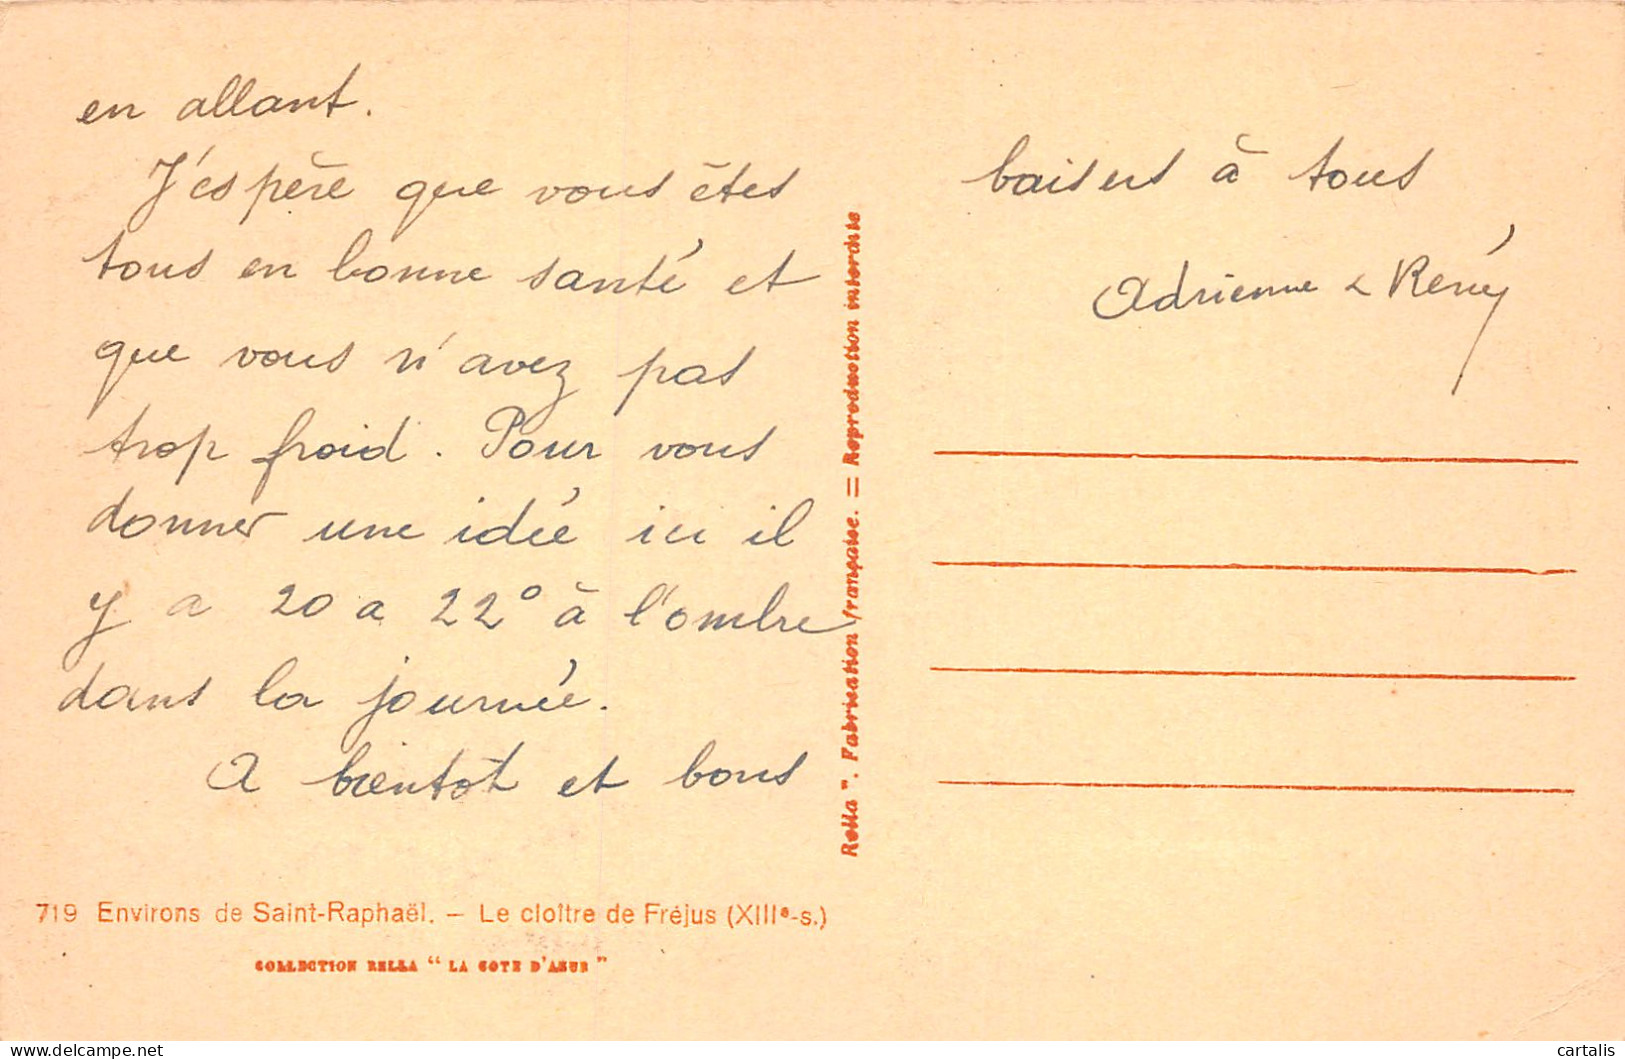 en allant.
J'espère que vous êtes
tous en bonne santé et
que vous n'avez pas
trop froid. Pour vous
donner une idée ici il
y a 20 a 22° à l'ombre
dans la journée.
A bientôt et bons
baisers à tous
Adrienne & René
Rella". Fabrication française. = Reproduction interdite
719 Environs de Saint-Raphaël. - Le cloître de Fréjus (XIIIe-s.)
COLLECTION RELLA "LA COTE D'AZUR"
delcampe.net
cartalis